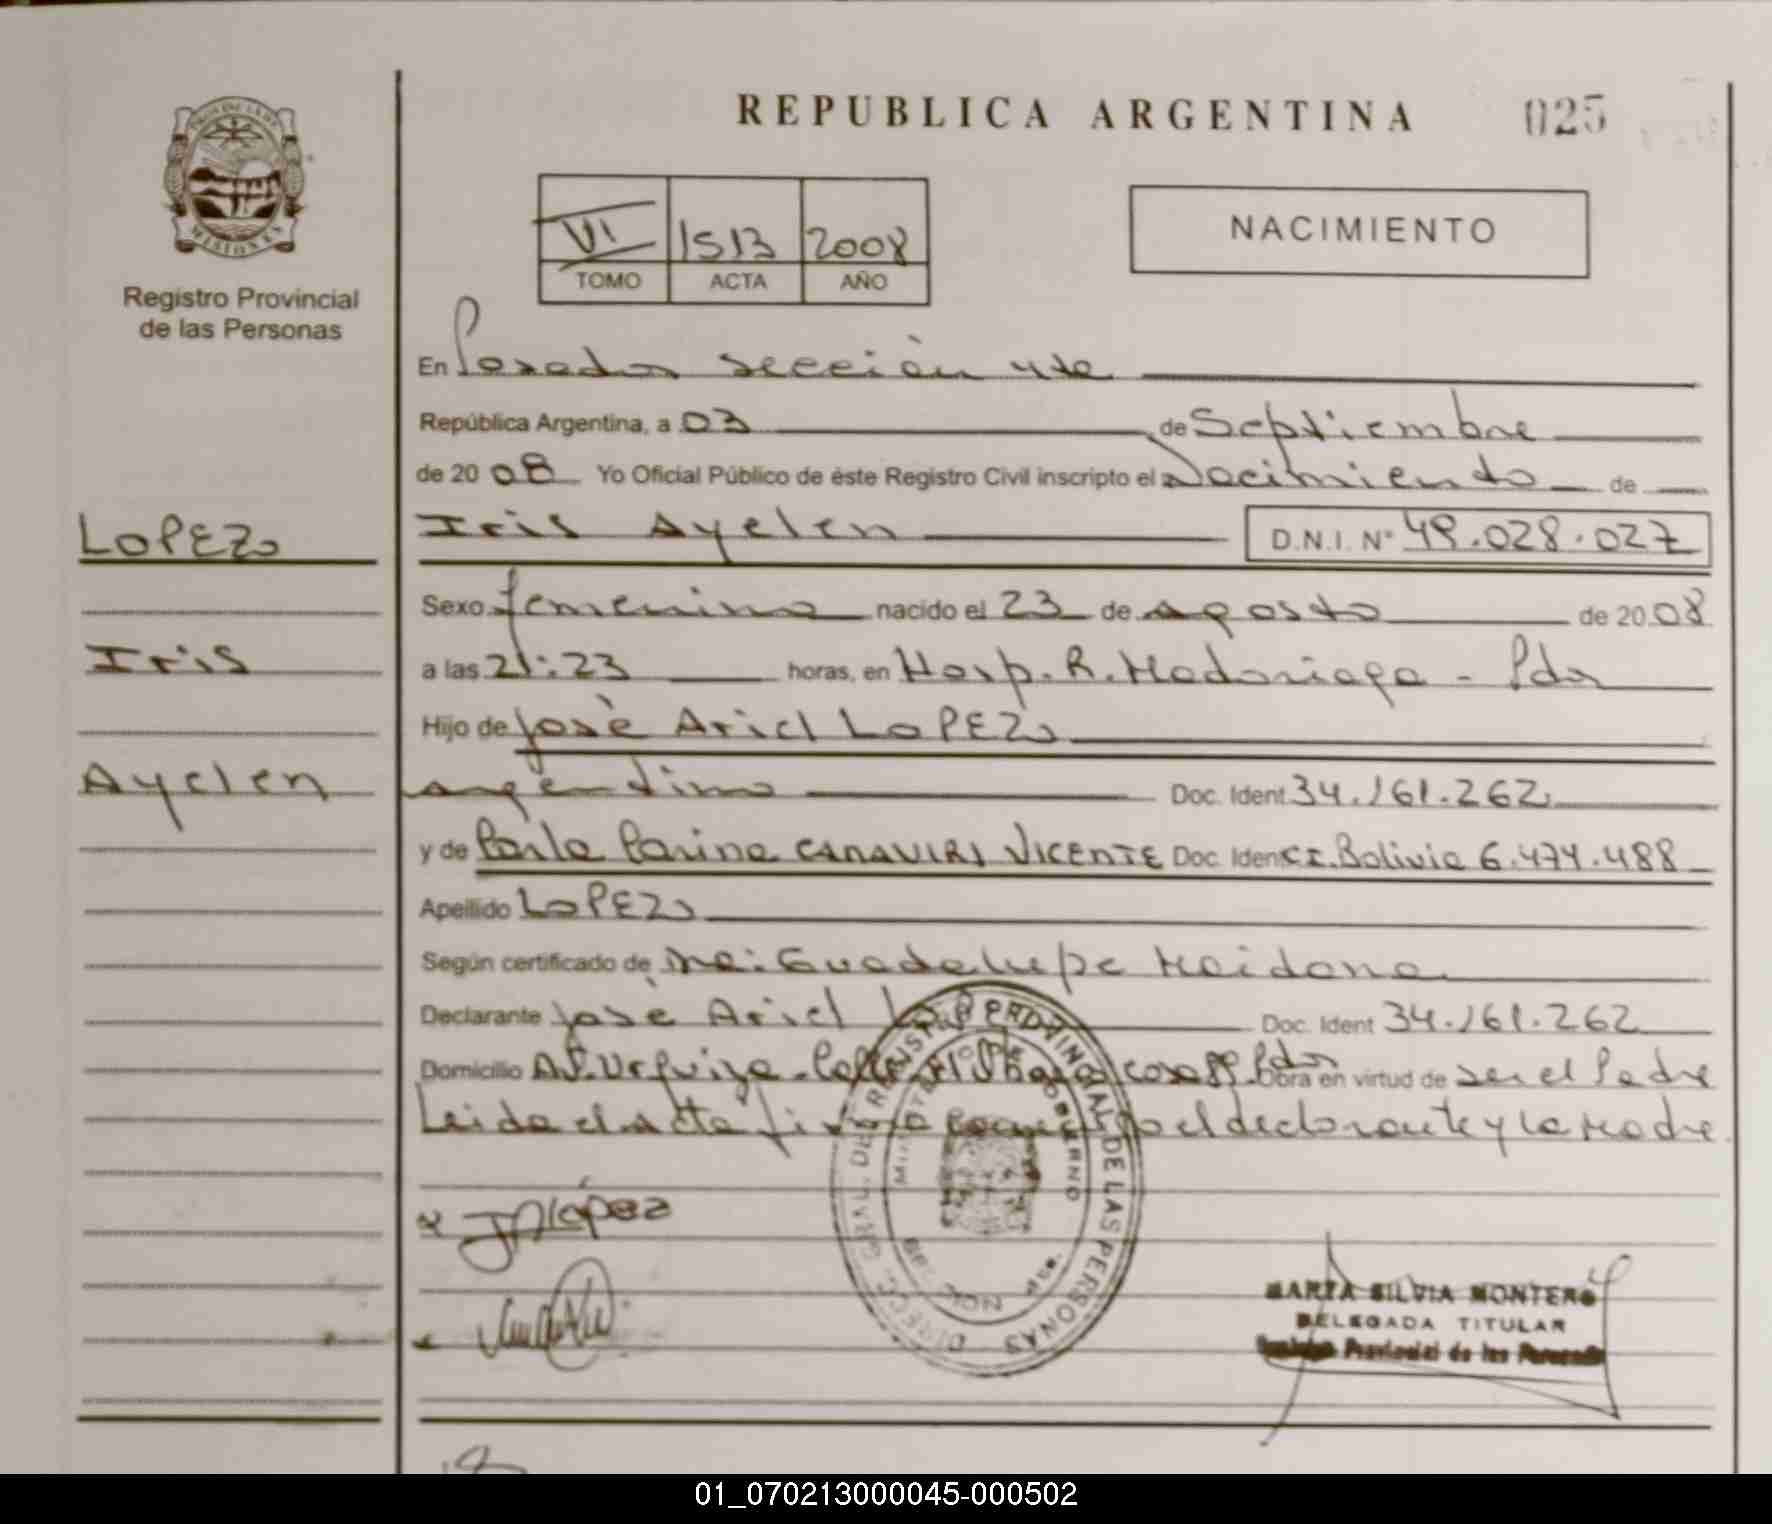 REPUBLICA ARGENTINA 025
PROV DE LAS
MISIONES
Registro Provincial
de las Personas
VI 1513 2008
TOMO ACTA AÑO
NACIMIENTO
En Posadas sección 4ta
República Argentina, a 03 de Septiembre
de 20 08 Yo Oficial Público de éste Registro Civil inscripto el Nacimiento de
LOPEZ
Iris Ayelen D.N.I. N° 49.028.027
Sexo femenino nacido el 23 de agosto de 20 08
Iris
a las 21:23 horas, en Hosp. R. Madariaga - Pdas
Hijo de José Ariel LOPEZ
Ayelen
argentino Doc. Ident. 34.161.262
y de Carla Carina CANAVIRI VICENTE Doc. Ident. C.I. Bolivia 6.474.488
Apellido LOPEZ
Según certificado de Dra: Guadalupe Maidana
Declarante José Ariel Doc. Ident 34.161.262
Domicilio Av. Urquiza - Calle casa Pdas Obra en virtud de ser el Padre
Leida el acta firma el declarante y la Madre
JALópez
DIRECC. GRAL. DEL REGISTRO PROVINCIAL DE LAS PERSONAS
MINISTERIO DE GOBIERNO
MARTA SILVIA MONTERO
DELEGADA TITULAR
Provincial de las Personas
01_070213000045-000502